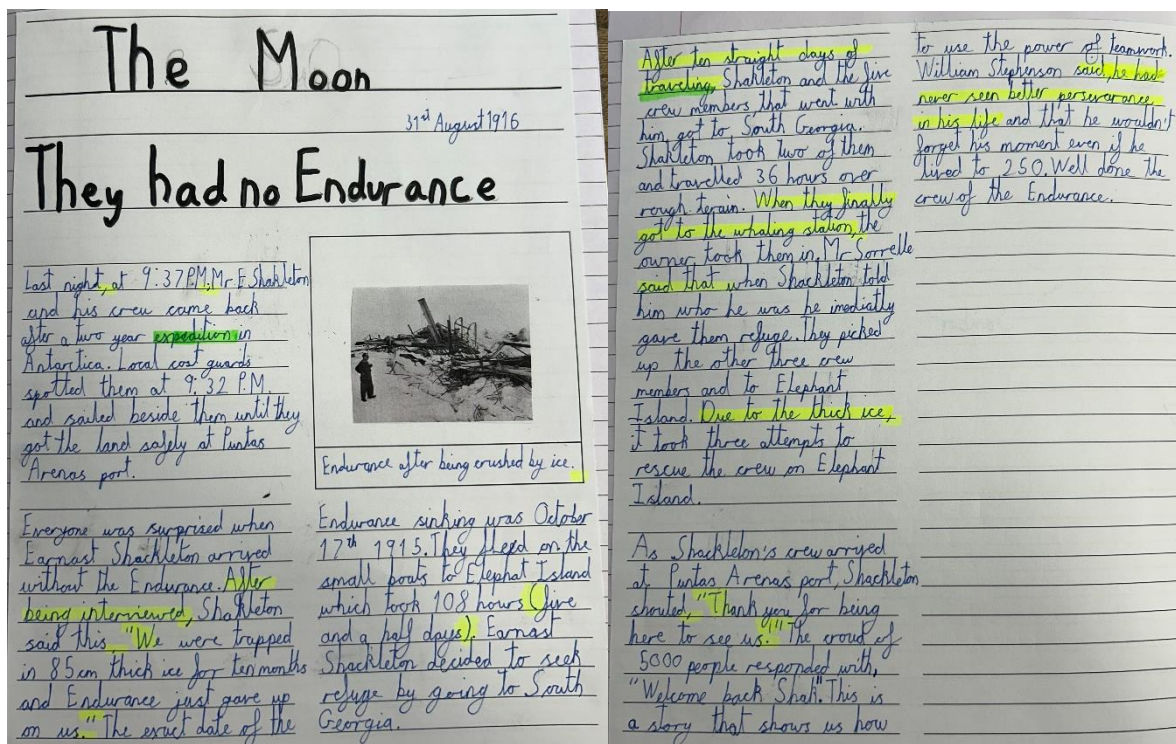 The Moon
31st August 1916
They had no Endurance
Last night, at 9:37P.M, Mr E Shakleton
and his crew came back
after a two year expedition in
Antarctica. Local cost guards
spotted them at 9:32 P.M.
and sailed beside them until they
got the land safely at Puntas
Arenas port.
Endurance after being crushed by ice.
Everyone was surprised when
Earnast Shackleton arrived
without the Endurance. After
being interviewed, Shakleton
said this "We were trapped
in 85cm thick ice for ten months
and Endurance just gave up
on us." The exact date of the
Endurance sinking was October
17th 1915. They fleed on the
small boats to Elephat Island
which took 108 hours (five
and a half days). Earnast
Shackleton decided to seek
refuge by going to South
Georgia.
After ten straight days of
traveling, Shakleton and the five
crew members that went with
him got to South Georgia.
Shakleton took two of them
and travelled 36 hours over
rough terain. When they finally
got to the whaling station, the
owner took them in, Mr Sorrelle
said that when Shackleton told
him who he was he imediatly
gave them refuge. They picked
up the other three crew
members and to Elephant
Island. Due to the thick ice,
it took three attempts to
rescue the crew on Elephant
Island.
As Shackleton's crew arrived
at Puntas Arenas port, Shackleton
shouted, "Thank you for being
here to see us!" The croud of
5000 people responded with,
"Welcome back Shak". This is
a story that shows us how
to use the power of teamwork.
William Stephenson said, he had
never seen better perseverance
in his life and that he wouldn't
forget his moment even if he
lived to 250. Well done the
crew of the Endurance.